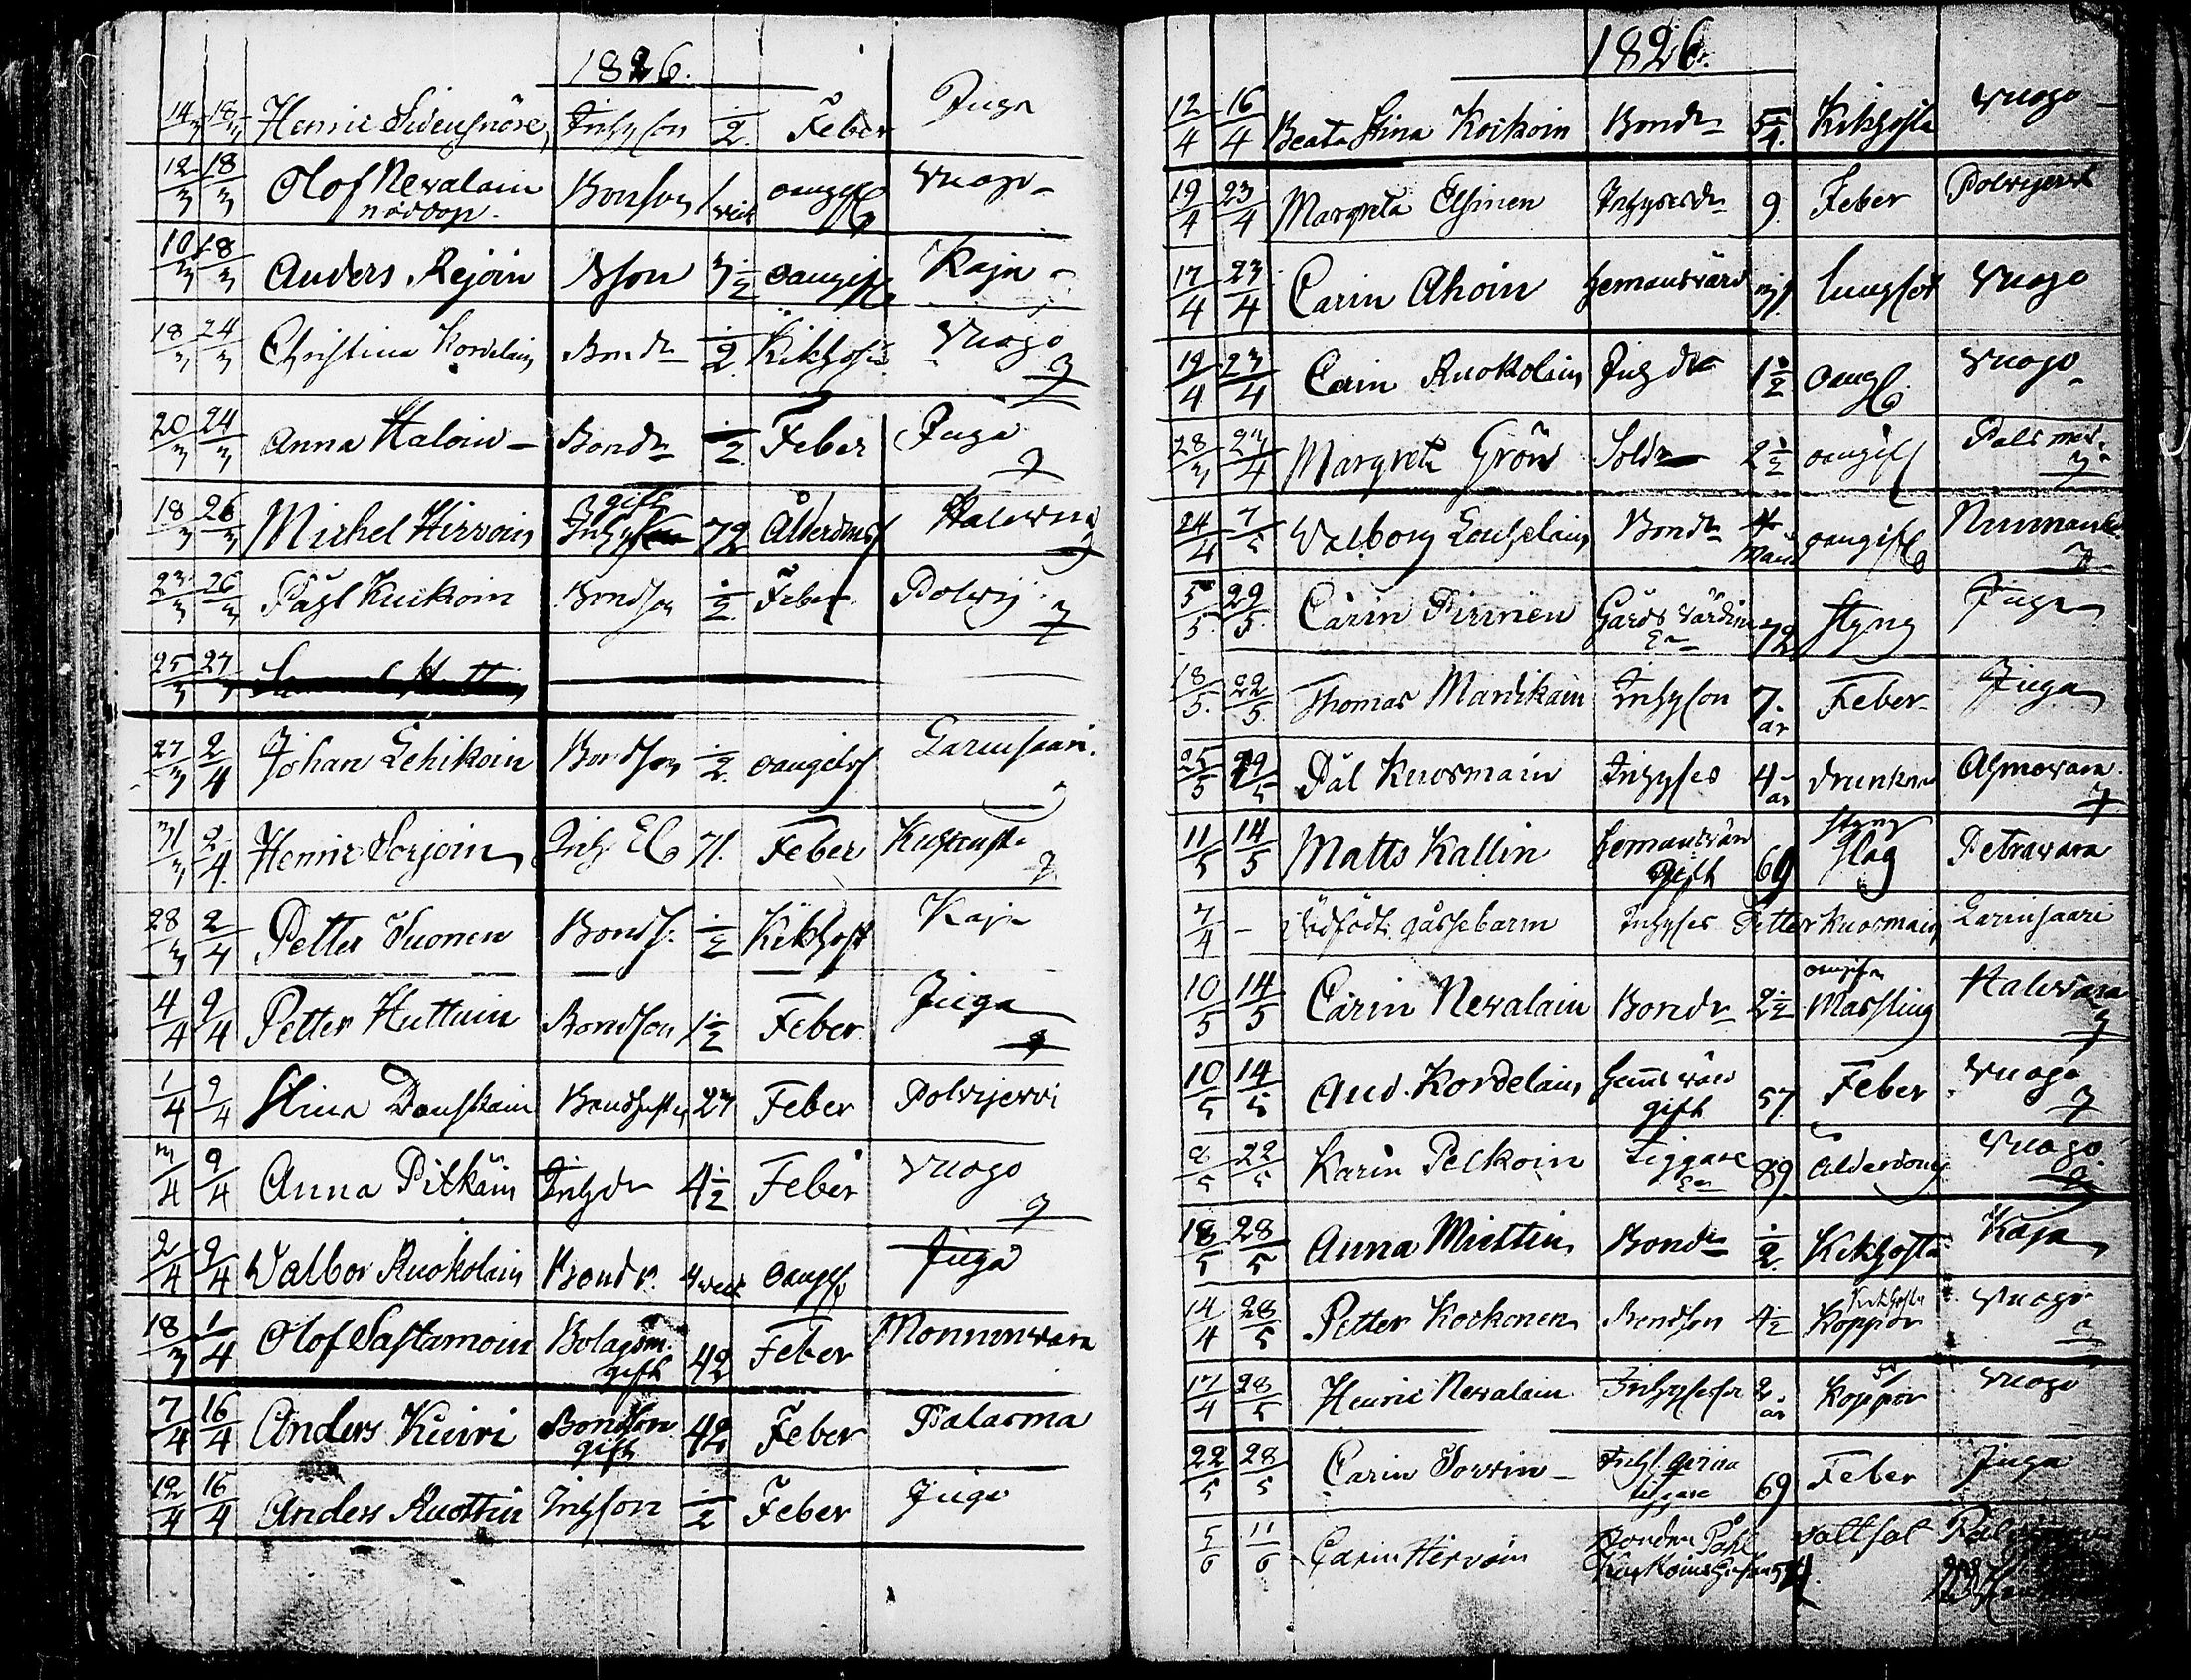 1826.
14/3 18/3 Henric Sivensnöre Inhyson 1/2 Feber Juga
12/3 18/3 Olof Nevalain Bonson 1 veck oangifv Vuogo
nöddop.
10/3 18/3 Anders Rejoin Bson 3 1/2 oangifv Kaja
18/3 24/3 Christina Kordelain Bondr 1/2 Kikhosta Vuogo
20/3 24/3 Anna Haloin Bondr 1/2 Feber Juga
gift
18/3 26/3 Michel Hirvoin Inhys 72 Ålderdoms Halivara
23/3 26/3 Påhl Kuikoin Bondson 1/2 Feber Polvij
25/3 27/3
27/3 2/4 Johan Lehikoin Bondson 1/2 oangifv Larinsaari.
31/3 2/4 Henric Sorjoin Inh. E 71. Feber
28/3 2/4 Petter Suonen Bonds. 1/2 Kikhost Kaja
4/4 9/4 Petter Huttuin Bondson 1 1/2 Feber Juga
1/4 9/4 Stina Danskain Bondhustr 27 Feber Polvijervi
3/4 9/4 Anna Pitkäin Inhdr 4 1/2 Feber Vuogo
2/4 9/4 Valbor Ruokolain Bondr. 4 veck oangifv Juga
18/3 1/4 Olof Sastamoin Bolagsm. 42 Feber Monninvara
gift
7/4 16/4 Anders Kuivri Bondson 42 Feber Palasma
gift
12/4 16/4 Anders Ruottin Inhson 1/2 Feber Juga
1826.
12/4 16/4 Beata Stina Koikoin Bondr 5/4. Kikhosta Vuogo
19/4 23/4 Margreta Elsinen Inhysesdr 9 Feber Polvijervi
17/4 23/4 Carin Ahoin hemansvärd 31 lungsot Vuogo
19/4 23/4 Carin Ruokolain Inhdr 1 1/2 oangf Vuogo
28/3 23/4 Margreta Grön Soldr 2 1/2 oangif Palasm.
24/4 7/5 Valborg Louhelain Bondr 4 Mån oangifv
5/5. 29/5. Carin Pirinen Gårds värdin 72 styng Juga
En
18/5. 22/5. Thomas Mardikain Inhyson 7. år Feber Juga
25/5 29/5 Pål Kuosmain Inhyses 4 år drunkna Ahmovara.
styng
11/5 14/5 Matts Kallin hemansvärd 69 slag Petravara
gift
7/4 - dödfödt gossebarn Inhyses Petter Kuosmain Larinsaari
oangifn
10/5 14/5 Carin Nevalain Bondr 2 1/2 Massling Halivara
10/5 14/5 And. Kordelain hemsvärd 57. Feber Vuogo
gift
8/5 22/5 Karin Pelkoin Tiggare 89 Ålderdoms Vuogo
En
18/5 28/5 Anna Miettin Bondr 1/2 Kikhosta Kaja
Kikhosta
14/4 28/5 Petter Kockonen Bondson 4 1/2 Koppor Vuogo
17/4 28/5 Henric Nevalain Inhyseson 2 år Koppor Vuogo
22/5 28/5 Carin Sorvin Inhs. qvina 69 Feber Juga
tiggare
5/6 11/6 Carin Hirvoin Bonden Påhl vattsot
Kuikoins hustru 54.